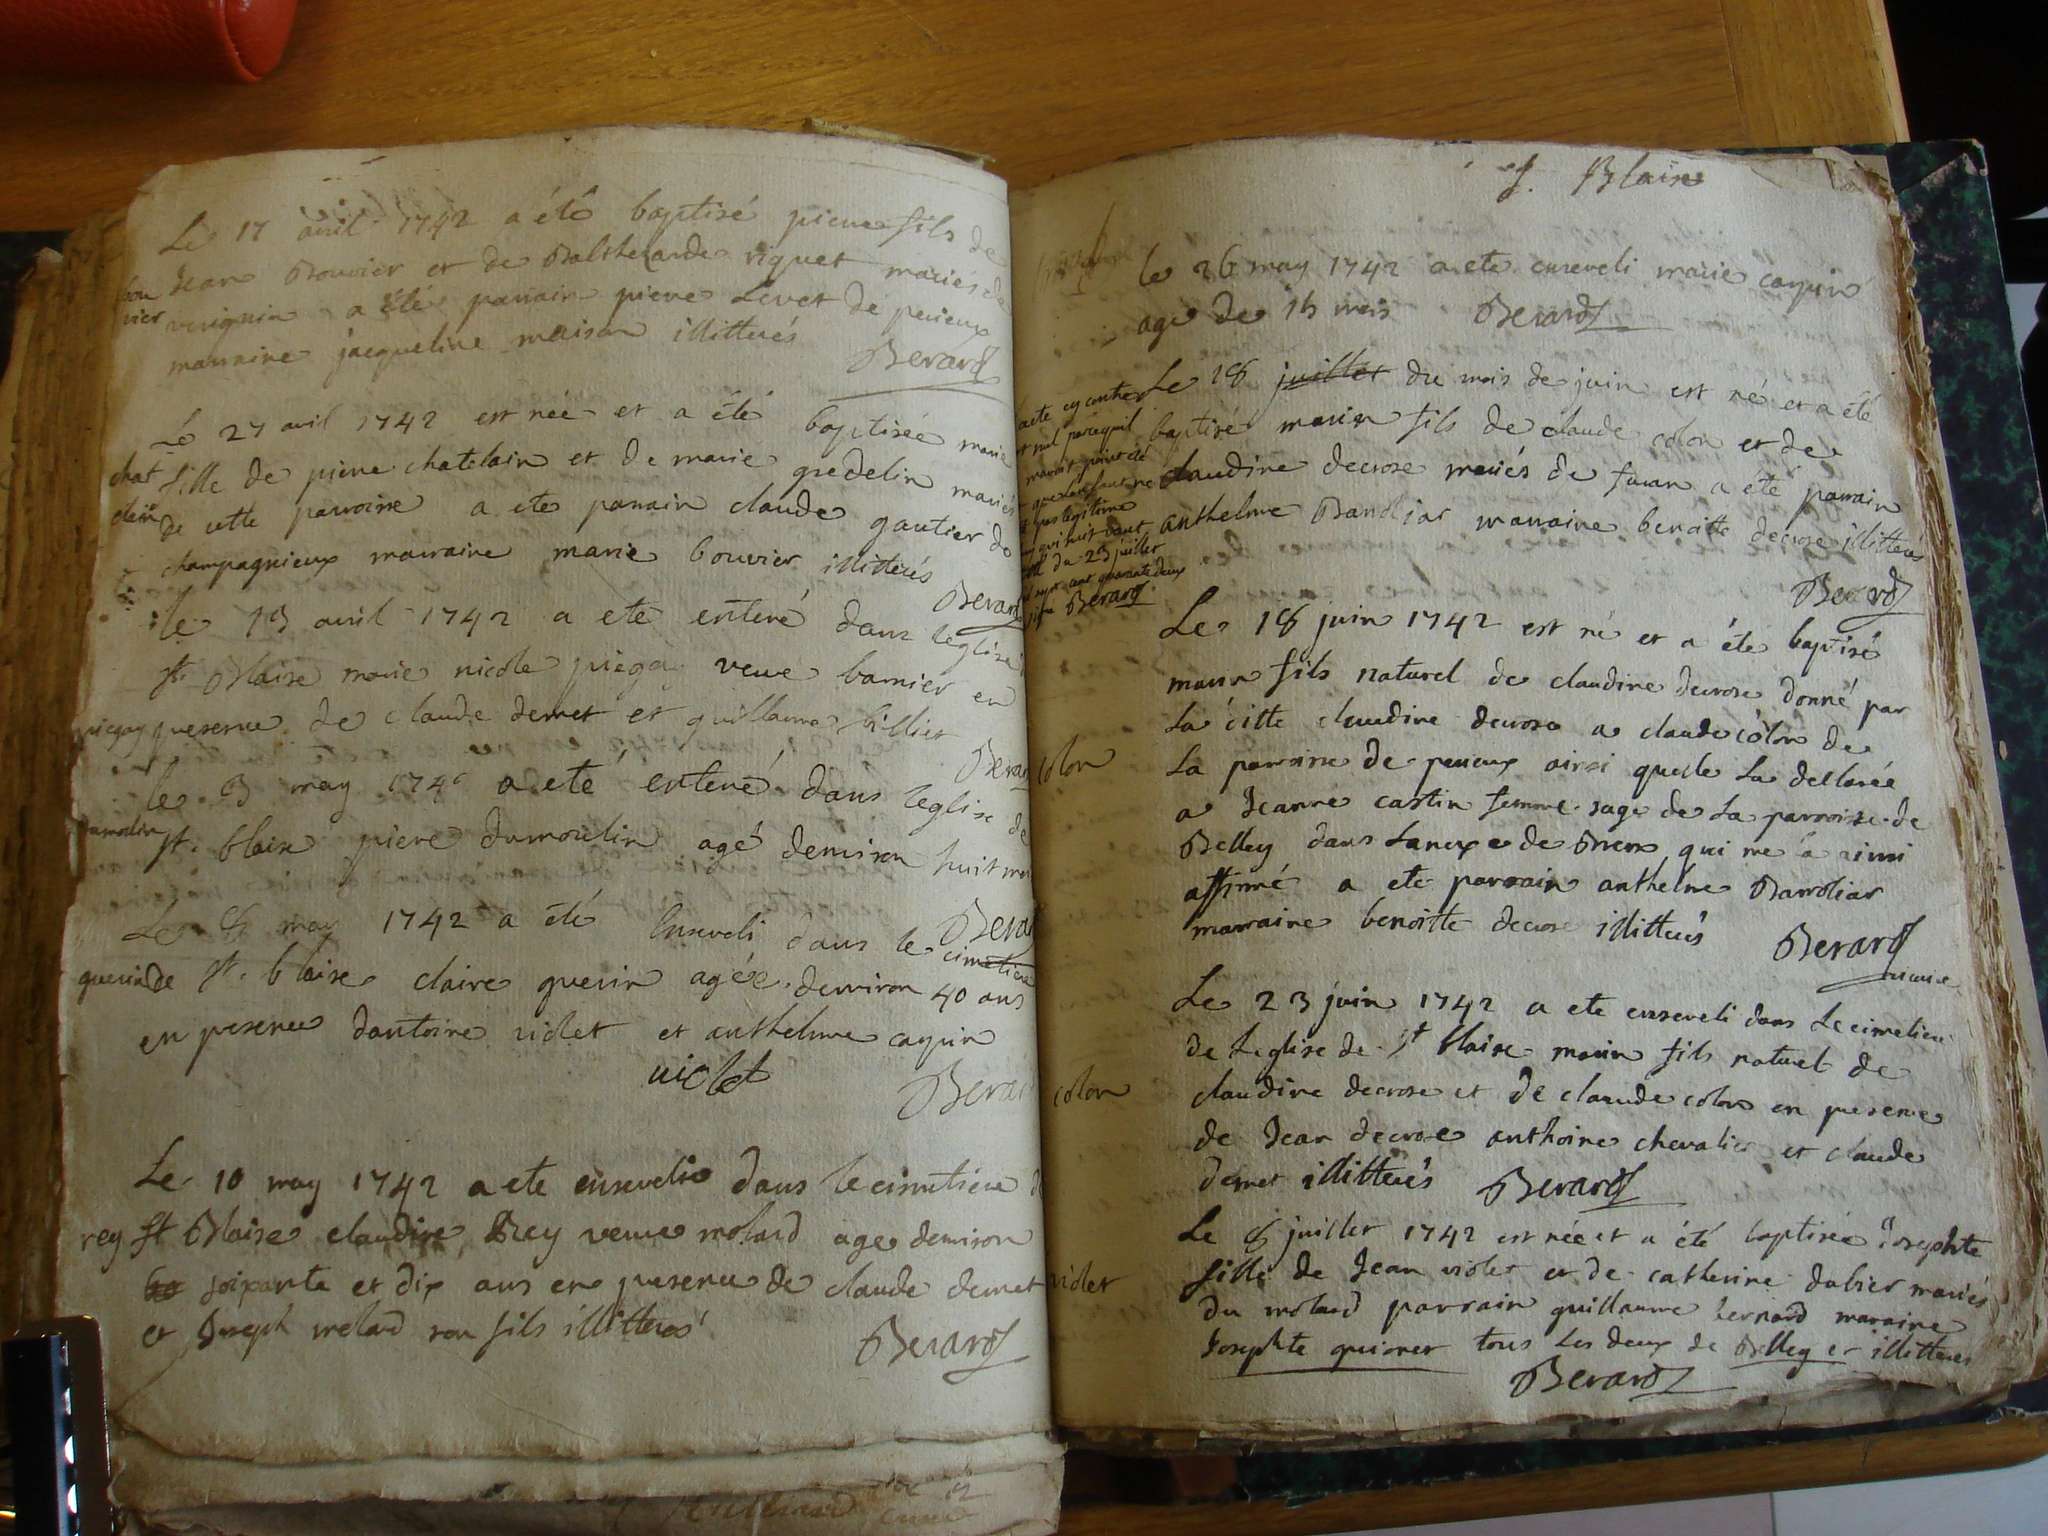 Le 17 avril 1742 a été baptisé pierre fils de
bou Jean Bouvier et de Balthezarde riguet mariés de
vier a été parrain pierre Livet de peirieux
marraine jacqueline maison illitterés
Berard
Le 27 avril 1742 est née et a été baptisée marie
chat fille de pierre chatelain et de marie gredelin mariés
elain de cette parroisse a ete parrain claude gautier de
champagnieux marraine marie bouvier illitterés
Berard
le 13 avril 1742 a ete enteré dans leglise
st. Blaise marie nicole piegay veuve barnier en
piegay presence de claude demet et guillaume billiet
Berar
le 3 may 174 a eté enteré dans leglise de
dumolin st. blaise piere dumoulin agé denviron huit mois
Berar
Le 8 may 1742 a été Enseveli dans le cimetiere
guerin de st. blaise claire guerin agée denviron 40 ans
en presence dantoine violet et anthelme carpin
violet
Berar
Le 10 may 1742 a ete ensevelie dans le cimetiere de
rey st Blaise claudine Rey veuve molard age denviron
soixante et dix ans en presence de claude demet
et Joseph molard son fils illitterés
Berard
st. Blaise
le 26 may 1742 a ete enseveli marie carpin
age de 15 mois Berard
acte cy contre
nul parcequil
point été
legitime
du 23 juillet
sept cent quarante deux
Berard
Le 18 juillet du mois de juin est né et a été
baptisé marin fils de claude colon et de
claudine decrose mariés de furan a été parrain
anthelme Bandliar marraine benoitte decrose illitterés
Berard
Le 18 juin 1742 est né et a été baptisé
marin fils naturel de claudine decrose donné par
la ditte claudine decrose a claude colon de
colon
la parroisse de peirieux ainsi quelle la declarée
a Jeanne castin femme sage de la parroisse de
Belley dans de Brens qui me la ainsi
affirmé a ete parrain anthelme Bandliar
marraine benoitte decrose illitterés
Berard
vicaire
Le 23 juin 1742 a ete enseveli dans le cimetiere
de Leglise de st blaise marin fils naturel de
colon claudine decrose et de claude colon en presence
de Jean decrose anthoine chevalier et claude
demet illitterés Berard
Le 8 juillet 1742 est née et a été baptisée Josephte
violet fille de Jean violet et de catherine dubier mariés
du molard parrain guillaume bernard maraine
Josephte guionet tous les deux de Belley et illitterés
Berard